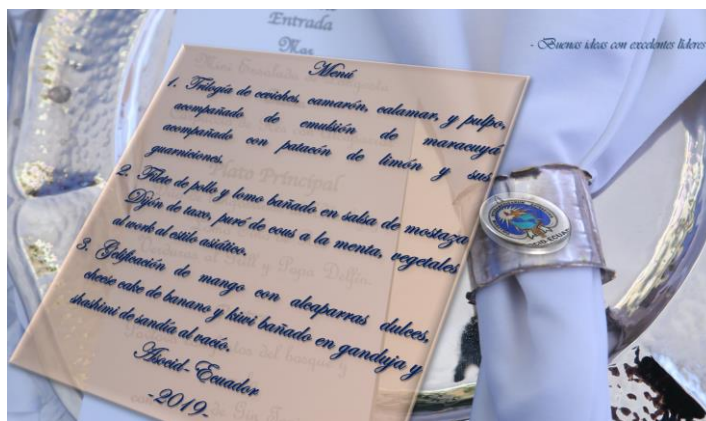 Entrada
- Buenas ideas con excelentes líderes
Menú
1. Trilogía de ceviches, camarón, calamar, y pulpo,
acompañado de emulsión de maracuyá
acompañado con patacón de limón y sus
guarniciones.
2. Filete de pollo y lomo bañado en salsa de mostaza
Dijón de taxo, puré de cous a la menta, vegetales
al work al estilo asiático.
3. Gelificación de mango con alcaparras dulces,
cheese cake de banano y kiwi bañado en ganduja y
shashimi de sandía al vacío.
Asocid-Ecuador
-2019-
Plato Principal
Verduras al Grill y Papa Delfín